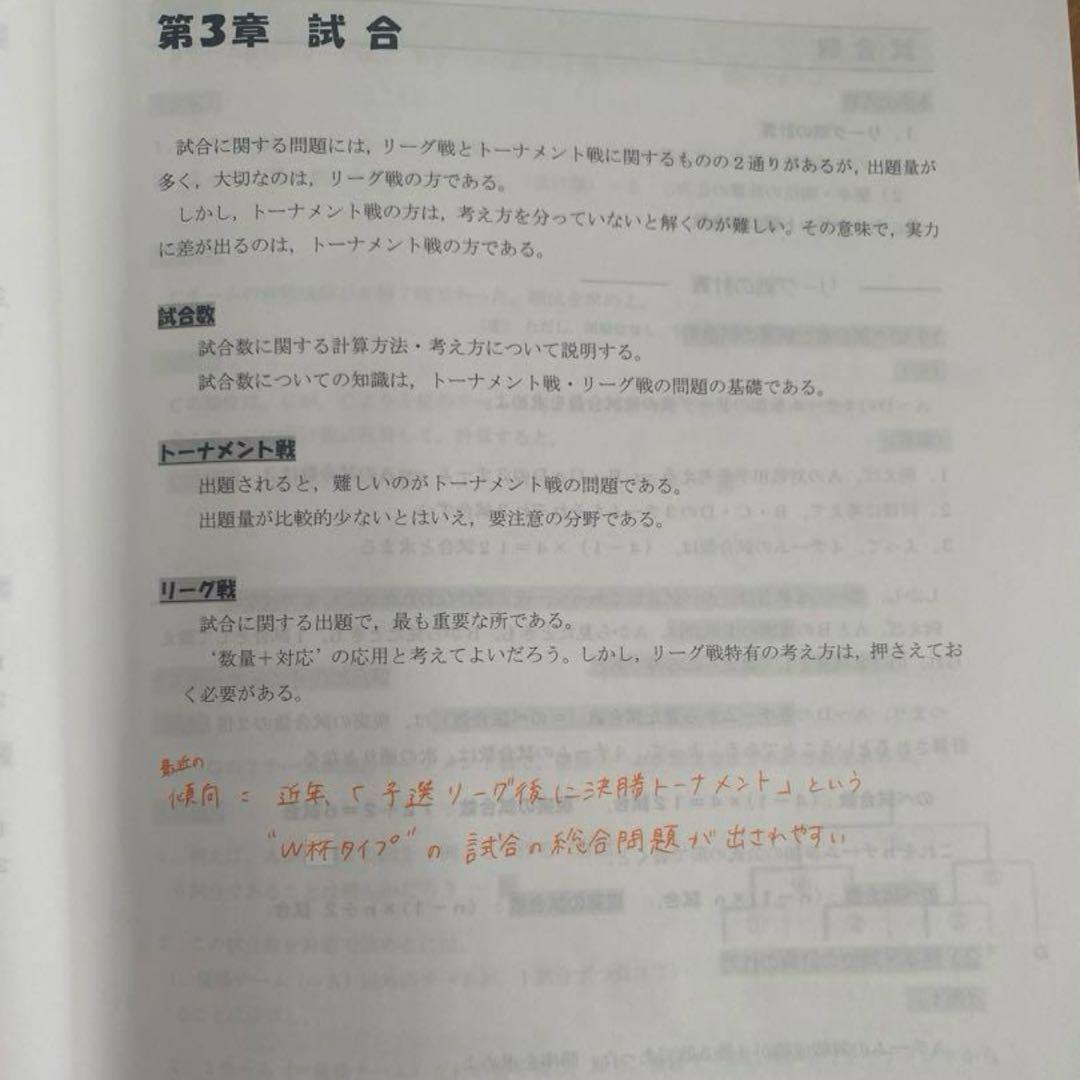 第3章　試 合
試合に関する問題には，リーグ戦とトーナメント戦に関するものの２通りがあるが，出題量が
多く，大切なのは，リーグ戦の方である。
しかし，トーナメント戦の方は，考え方を分っていないと解くのが難しい。その意味で，実力
に差が出るのは，トーナメント戦の方である。
試合数
試合数に関する計算方法・考え方について説明する。
試合数についての知識は，トーナメント戦・リーグ戦の問題の基礎である。
トーナメント戦
出題されると，難しいのがトーナメント戦の問題である。
出題量が比較的少ないとはいえ，要注意の分野である。
リーグ戦
試合に関する出題で，最も重要な所である。
‘数量＋対応’の応用と考えてよいだろう。しかし，リーグ戦特有の考え方は，押さえてお
く必要がある。
最近の
傾向 = 近年、「予選リーグ後に決勝トーナメント」という
“W杯タイプ”の 試合の総合問題が出されやすい